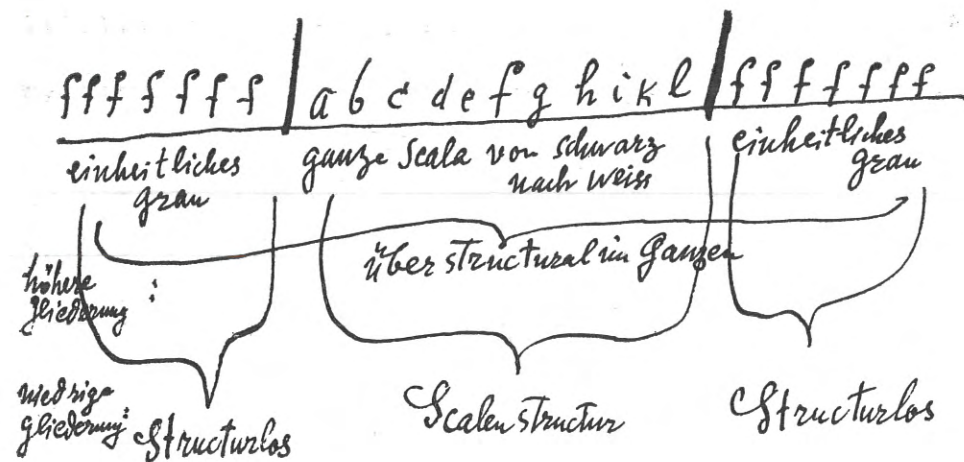 f f f f f f f | a b c d e f g h i k l | f f f f f f f
einheitliches grau
ganze Scala von schwarz nach weiss
einheitliches grau
höhere gliederung :
über structural im Ganzen
niedrige gliederung :
Structurlos
Scalenstructur
Structurlos